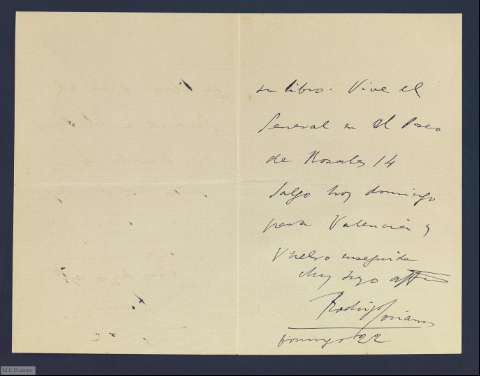 su libro. Vive el
General en el Paseo
de Rosales 14
Salgo hoy domingo
para Valencia y
vuelvo enseguida
Muy suyo affmo
Rodrigo Soriano
Domingo 22